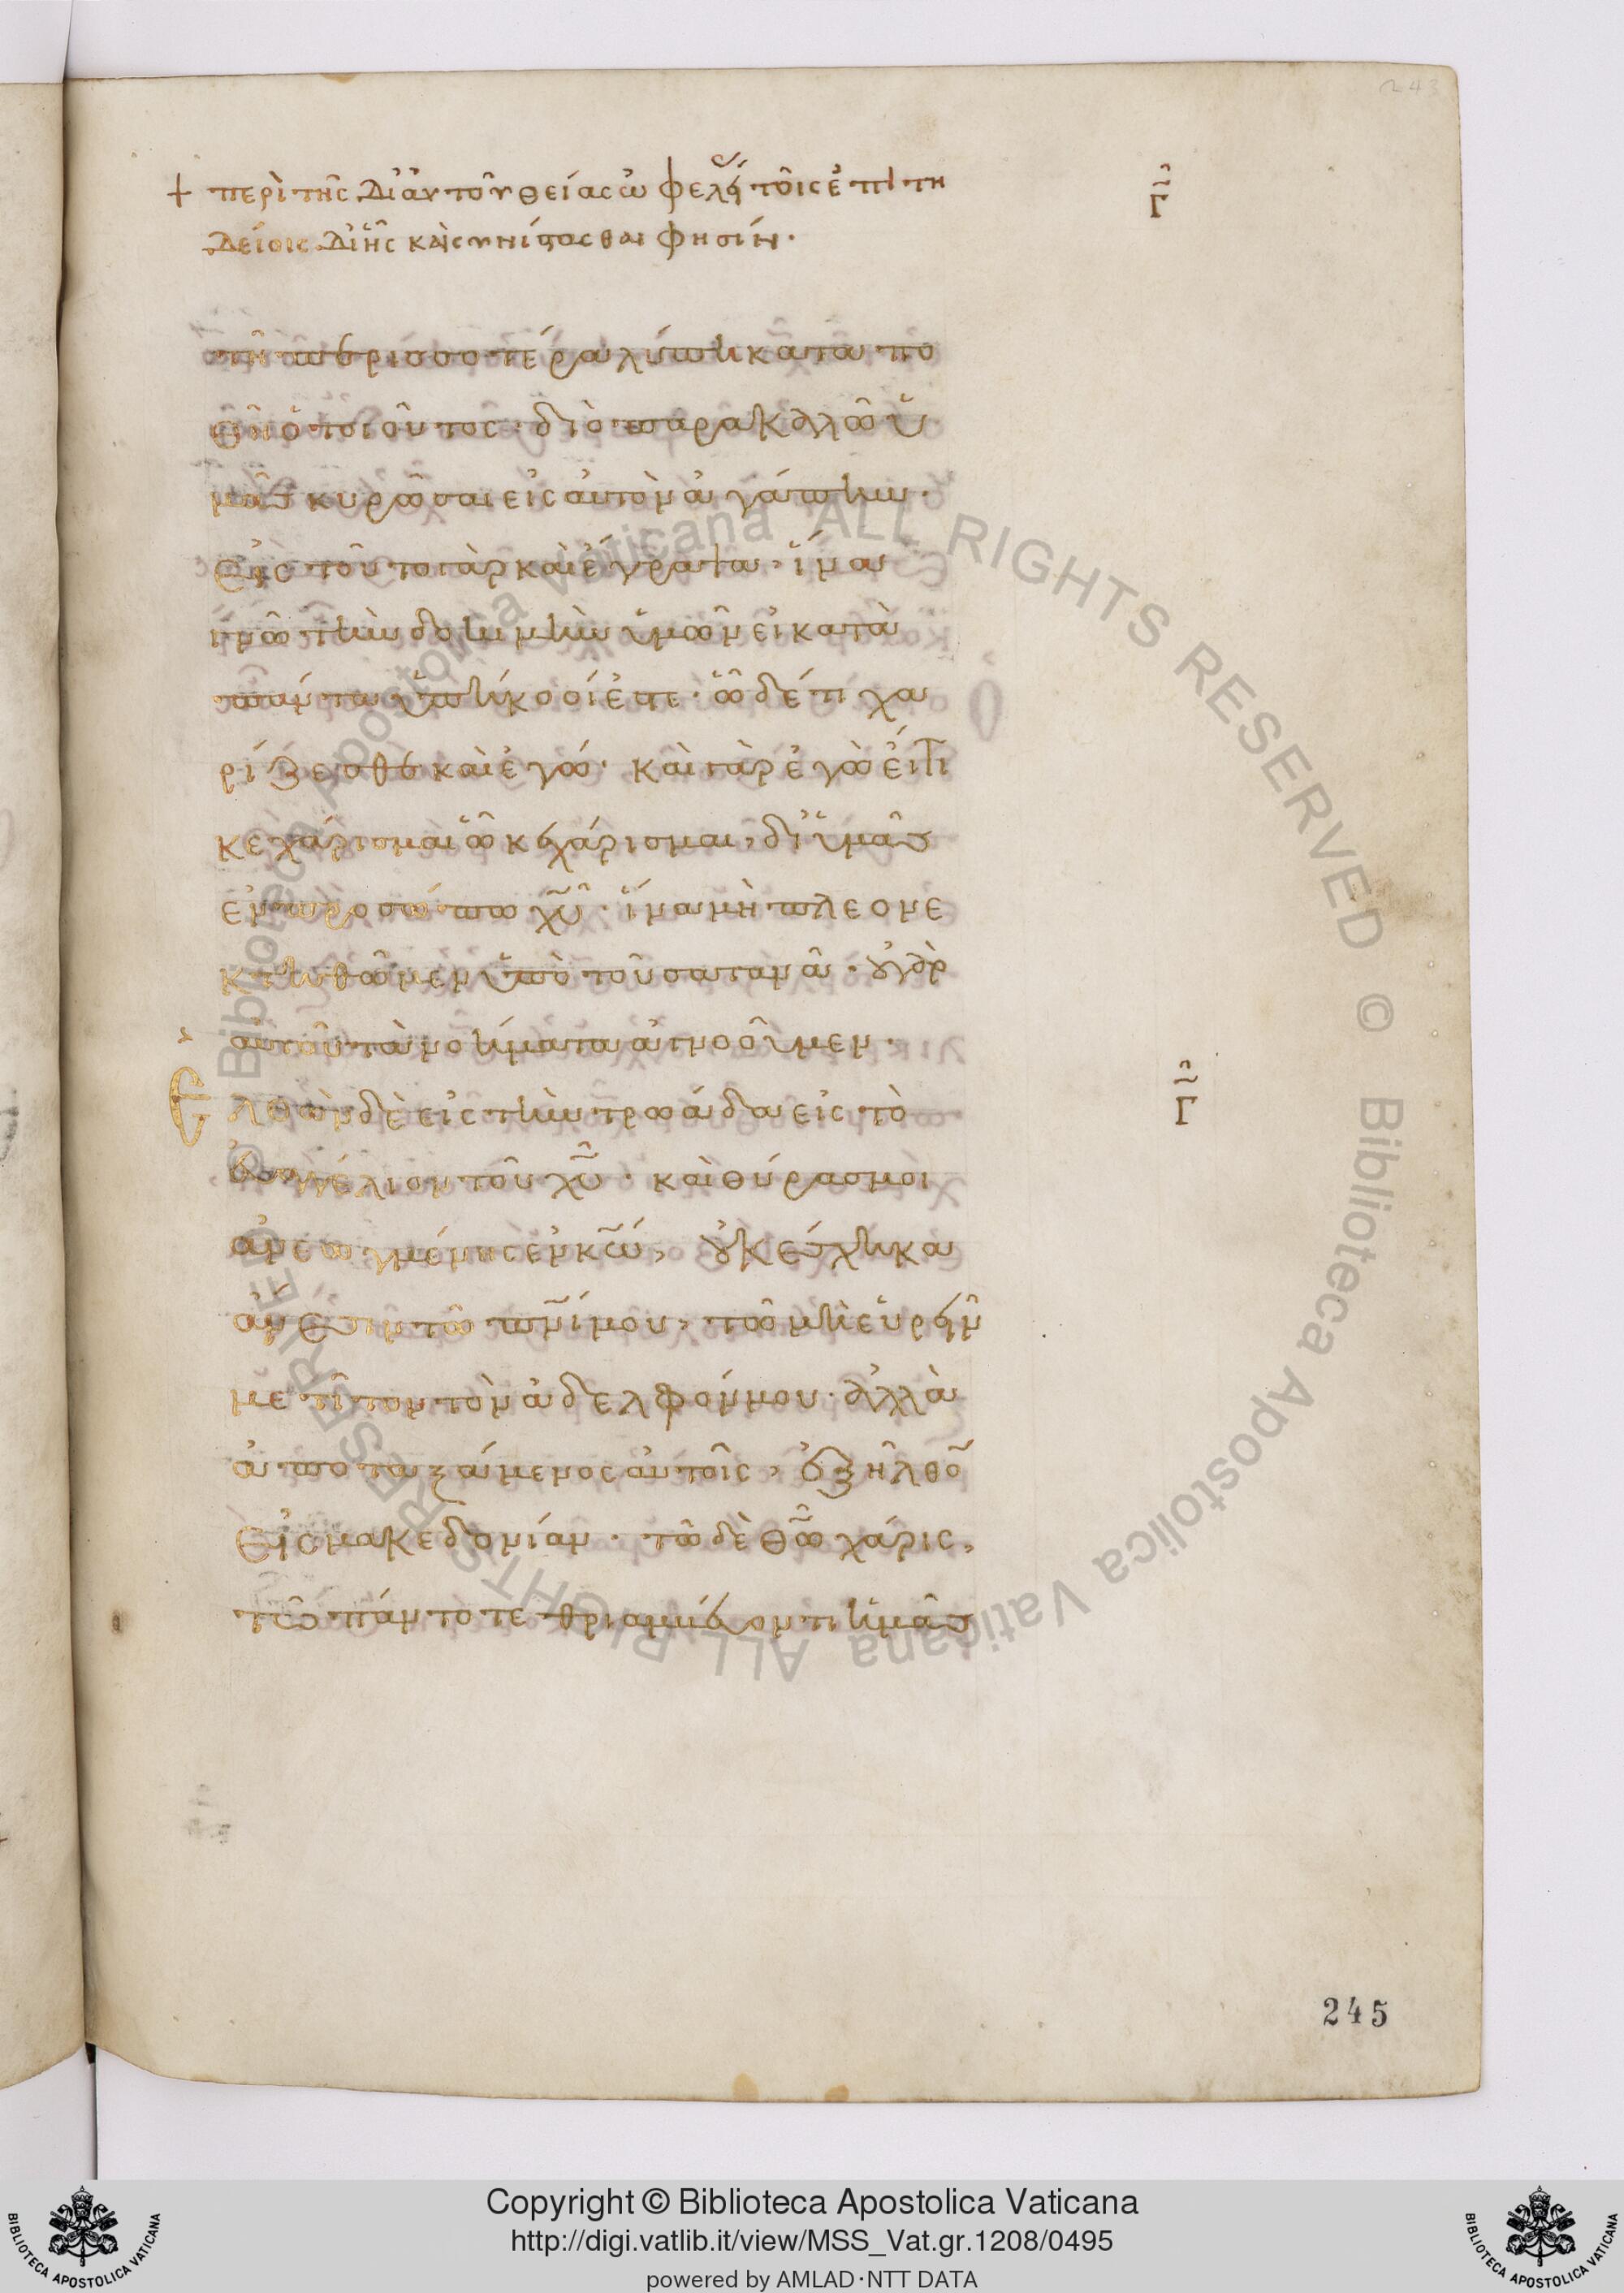 243
+ περὶ τῆς δι' αὐτοῦ θείας ὠφελείας τοῖς ἐπιτη
δείοις δι' ἧς καὶ συνίστασθαι φησίν·
Γ
τῆ περισσοτέρα λύπη καταπο
θῆ ὁ τοιοῦτος· διὸ παρακαλῶ ὑ
μᾶς κυρῶσαι εἰς αὐτὸν ἀγάπην·
Εἰς τοῦτο γὰρ καὶ ἔγραψα· ἵνα
γνῶ τὴν δοκιμὴν ὑμῶν εἰ κατὰ
πάντα ὑπήκοοί ἐστε· ᾧ δέ τι χα
ρίζεσθε καὶ ἐγώ· καὶ γὰρ ἐγὼ εἴ τι
κεχάρισμαι ᾧ κεχάρισμαι, δι' ὑμᾶς
ἐν προσώπω χυ· ἵνα μὴ πλεονε
κτηθῶμεν ὑπὸ τοῦ σατανᾶ· οὐ γὰρ
αὐτοῦ τὰ νοήματα ἀγνοοῦμεν·
Ἐλθὼν δὲ εἰς τὴν τρωάδα εἰς τὸ
Γ
εὐαγγέλιον τοῦ χυ· καὶ θύρας μοι
ἀνεωγμένης ἐν κω, οὐκ ἔσχηκα
ἄνεσιν τῶ πνί μου, τῶ μὴ εὑρεῖν
με τίτον τὸν ἀδελφόν μου· ἀλλὰ
ἀποταξάμενος αὐτοῖς, ἐξῆλθον
Εἰς μακεδονίαν· τῶ δὲ θω χάρις,
τῶ πάντοτε θριαμβεύοντι ἡμᾶς
245
© Biblioteca Apostolica Vaticana ALL RIGHTS RESERVED © Biblioteca Apostolica Vaticana ALL RIGHTS RESERVED
Copyright © Biblioteca Apostolica Vaticana
http://digi.vatlib.it/view/MSS_Vat.gr.1208/0495
powered by AMLAD·NTT DATA
BIBLIOTECA APOSTOLICA VATICANA
BIBLIOTECA APOSTOLICA VATICANA